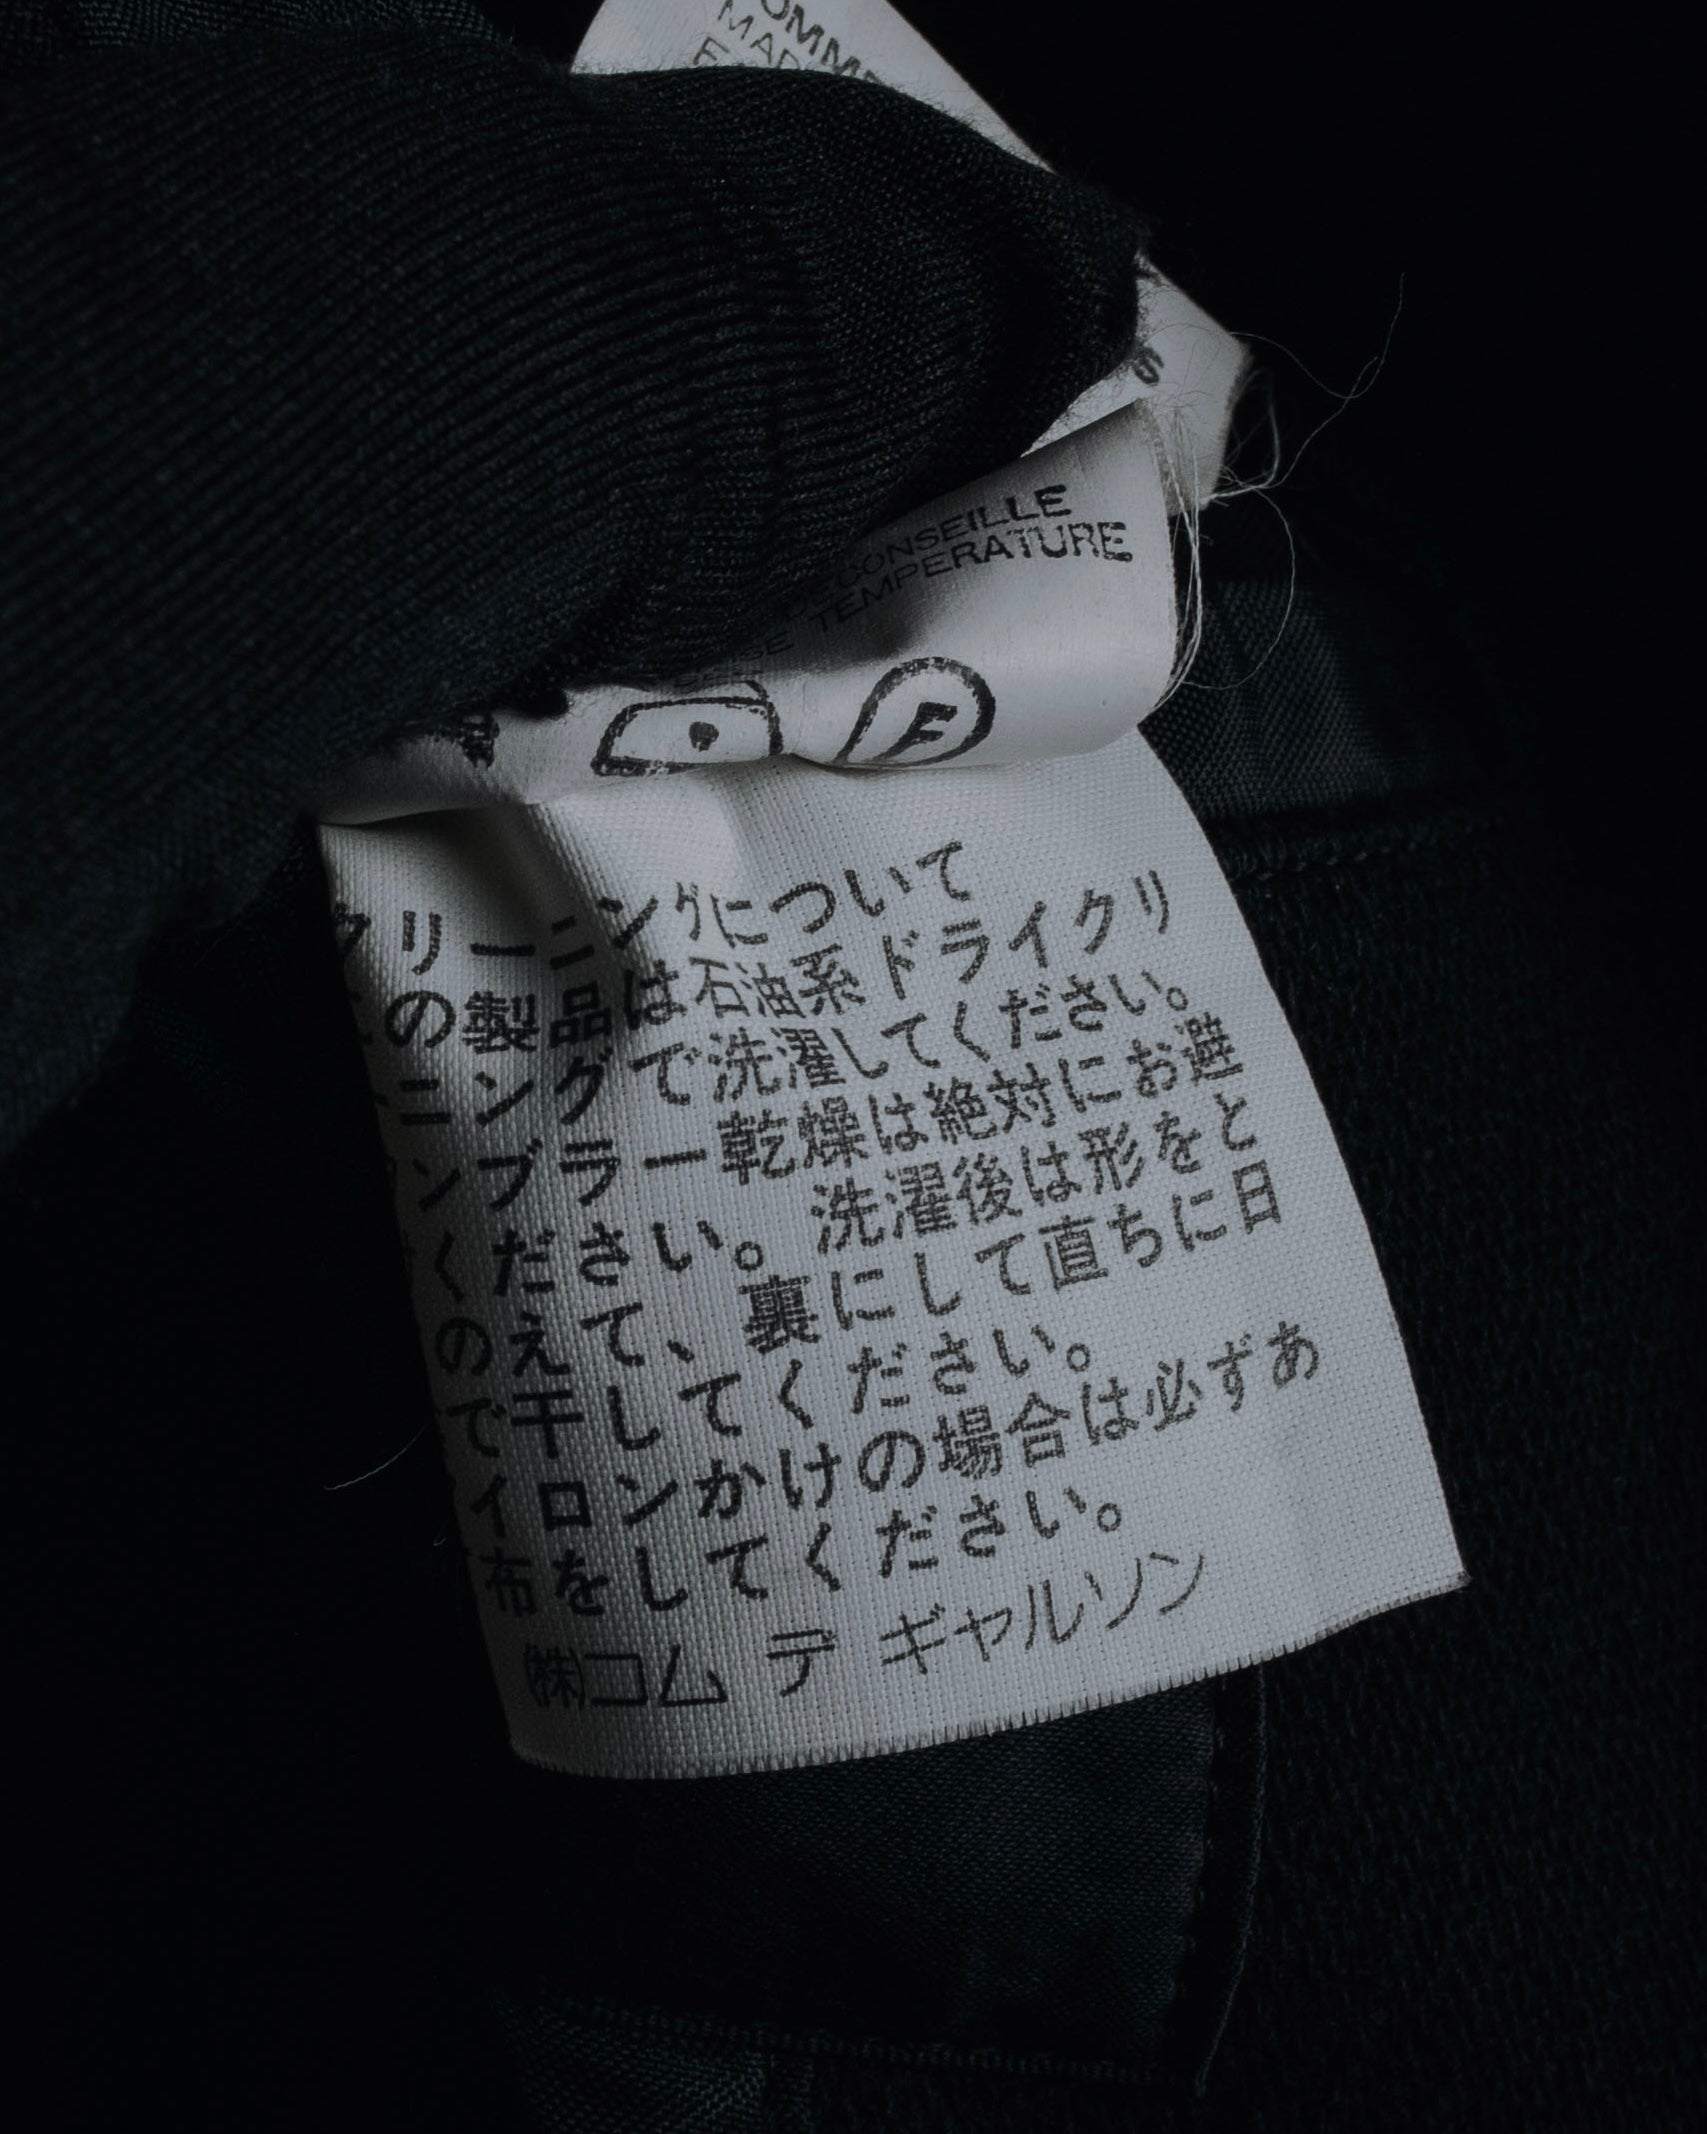 OMME
MAD
S
DECONSEILLE
TEMPERATURE
F
クリーニングについて
この製品は石油系ドライクリ
ーニングで洗濯してください。
タンブラー乾燥は絶対にお避
けください。洗濯後は形をと
とのえて、裏にして直ちに日
陰で干してください。
アイロンかけの場合は必ずあ
て布をしてください。
㈱コム デ ギャルソン